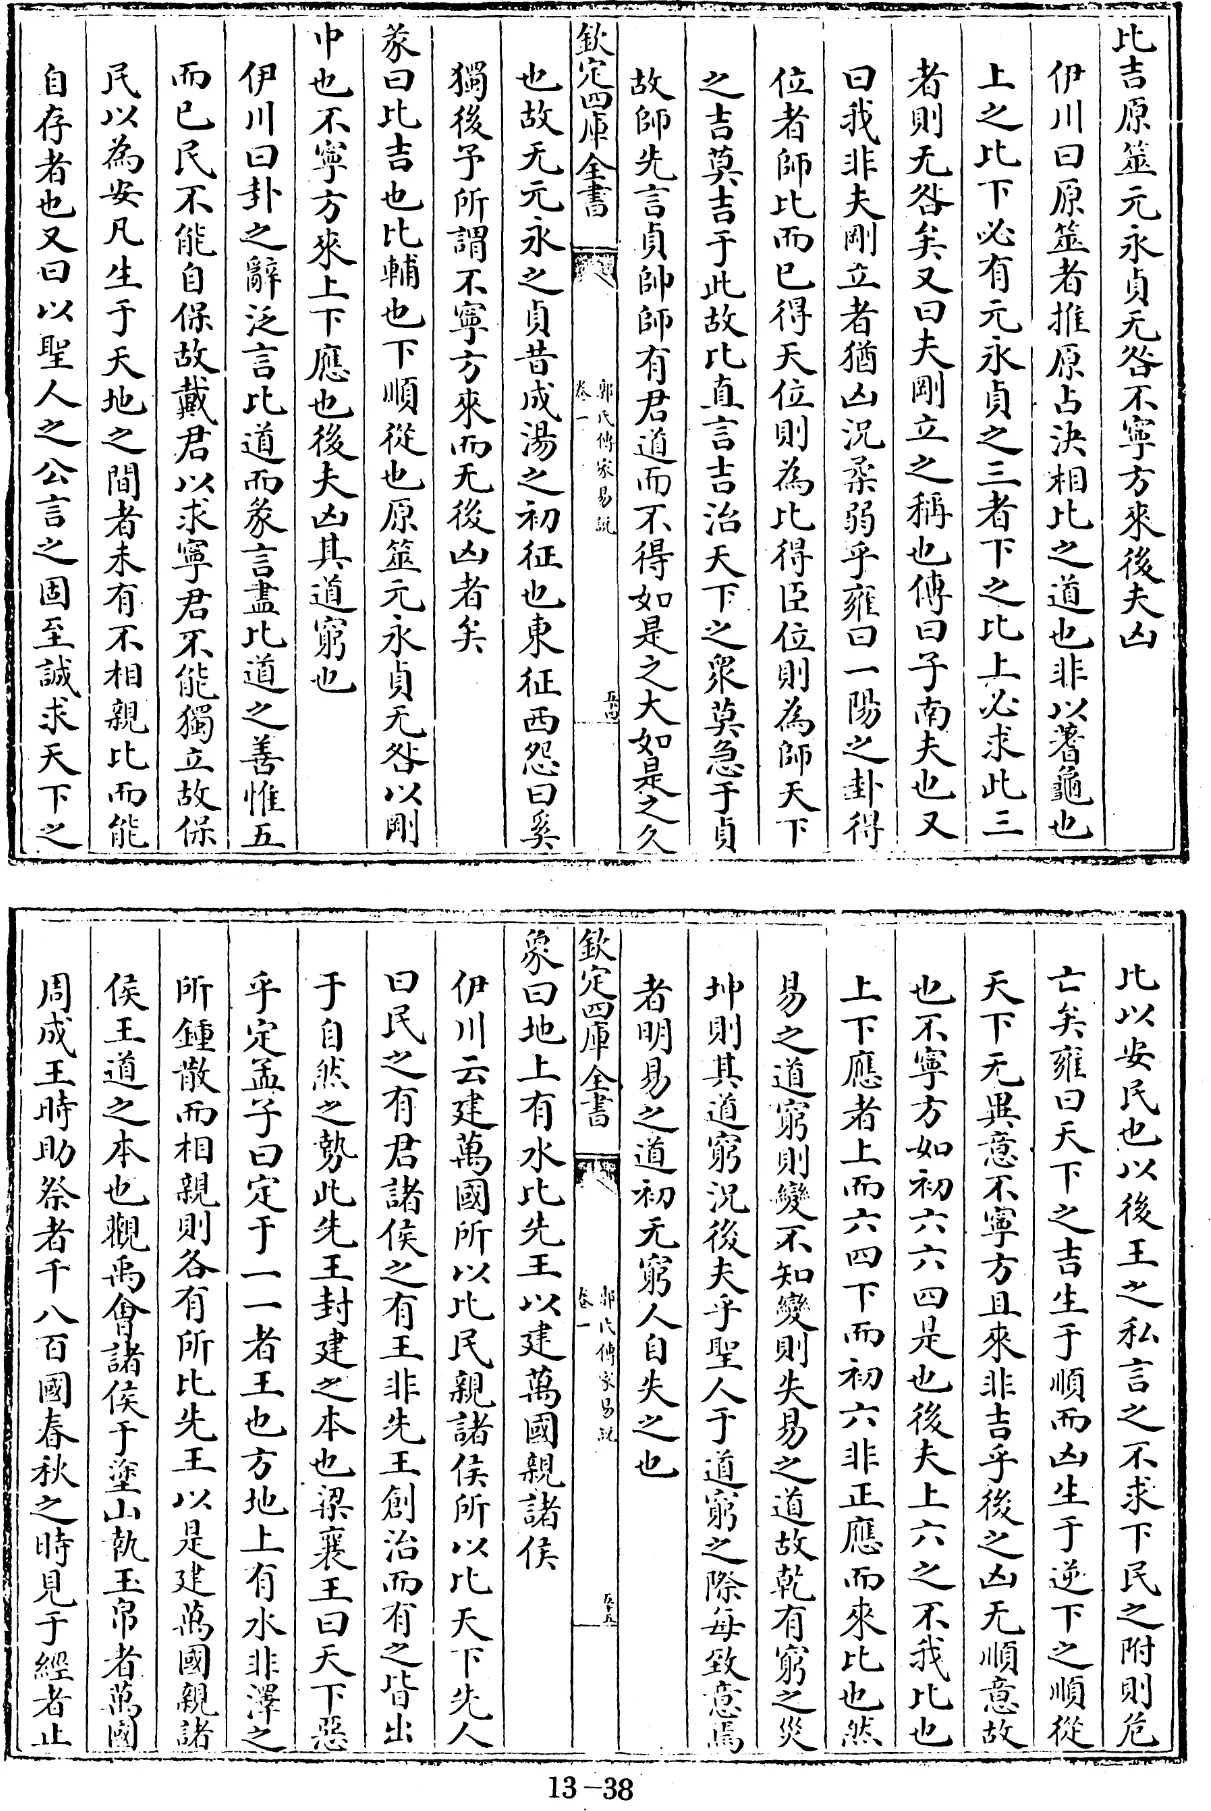 比吉原筮元永貞无咎不寧方來後夫凶
伊川曰原筮者推原占決相比之道也非以蓍龜也
上之比下必有元永貞之三者下之比上必求此三
者則无咎矣又曰夫剛立之稱也傳曰子南夫也又
曰我非夫剛立者猶凶況柔弱乎雍曰一陽之卦得
位者師比而已得天位則為比得臣位則為師天下
之吉莫吉于此故比直言吉治天下之衆莫急于貞
故師先言貞帥師有君道而不得如是之大如是之久
欽定四庫全書
郭氏傳家易說
卷一
五十四
也故无元永之貞昔成湯之初征也東征西怨曰奚
獨後予所謂不寧方來而无後凶者矣
彖曰比吉也比輔也下順從也原筮元永貞无咎以剛
中也不寧方來上下應也後夫凶其道窮也
伊川曰卦之辭泛言比道而彖言盡比道之善惟五
而已民不能自保故戴君以求寧君不能獨立故保
民以為安凡生于天地之間者未有不相親比而能
自存者也又曰以聖人之公言之固至誠求天下之
比以安民也以後王之私言之不求下民之附則危
亡矣雍曰天下之吉生于順而凶生于逆下之順從
天下无異意不寧方且來非吉乎後之凶无順意故
也不寧方如初六六四是也後夫上六之不我比也
上下應者上而六四下而初六非正應而來比也然
易之道窮則變不知變則失易之道故乾有窮之災
坤則其道窮況後夫乎聖人于道窮之際每致意焉
者明易之道初无窮人自失之也
欽定四庫全書
郭氏傳家易說
卷一
五十五
象曰地上有水比先王以建萬國親諸侯
伊川云建萬國所以比民親諸侯所以比天下先人
曰民之有君諸侯之有王非先王創治而有之皆出
于自然之勢此先王封建之本也梁襄王曰天下惡
乎定孟子曰定于一一者王也方地上有水非澤之
所鍾散而相親則各有所比先王以是建萬國親諸
侯王道之本也觀禹會諸侯于塗山執玉帛者萬國
周成王時助祭者千八百國春秋之時見于經者止
13-38